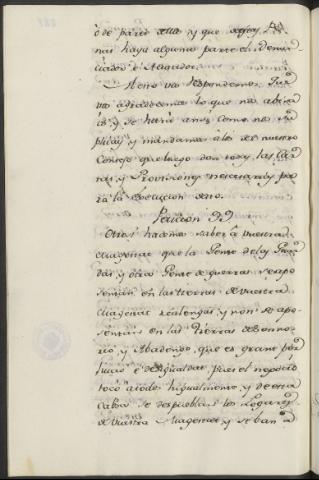 ò de parte
nas haya alguna parte el Denun
ciador o Acusador.
A esto vos respondemos, que
vos agradecemos lo que nos
y se hará ansi como nos su
plicays y mandamos à los del nuestro
Consejo que luego den todas las Car
tas, y Provisiones necesarias pa
ra la execucion dello.
Peticion
Otrosi hacemos saber à vuestra
Magestad que la Gente de las Guar
das, y otra Gente de guerra se apo
sentan en las tierras de vuestra
Magestad realengas, y non se apo
sentan en las Tierras de Senno
rio, y Abadengo, que es grave per
juicio è desigualdad, pues el negocio
toca a todos igualmente, y de esta
cabsa se despueblan los Logares
de vuestra Magestad, y se ban à